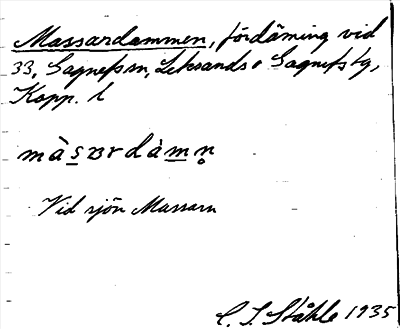 Massardammen, fördämning vid
33, Gagnefs sn, Leksands o Gagnefs tg,
Kopp. l
màsɐrdàmn̥
Vid sjön Massarn
C. I. Ståhle 1935